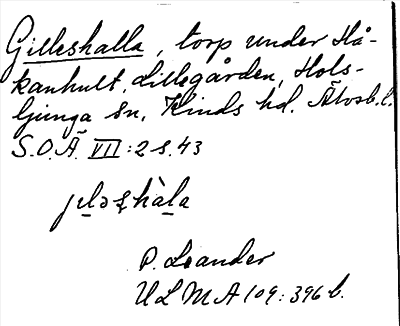 Gilleshalla, torp under Hå-
kanhult, Lillegården, Hols-
ljunga sn, Kinds hd. Älvsb. l.
S.O.Ä VII: 2 s. 43
P. Leander
ULMA 109: 396 b.